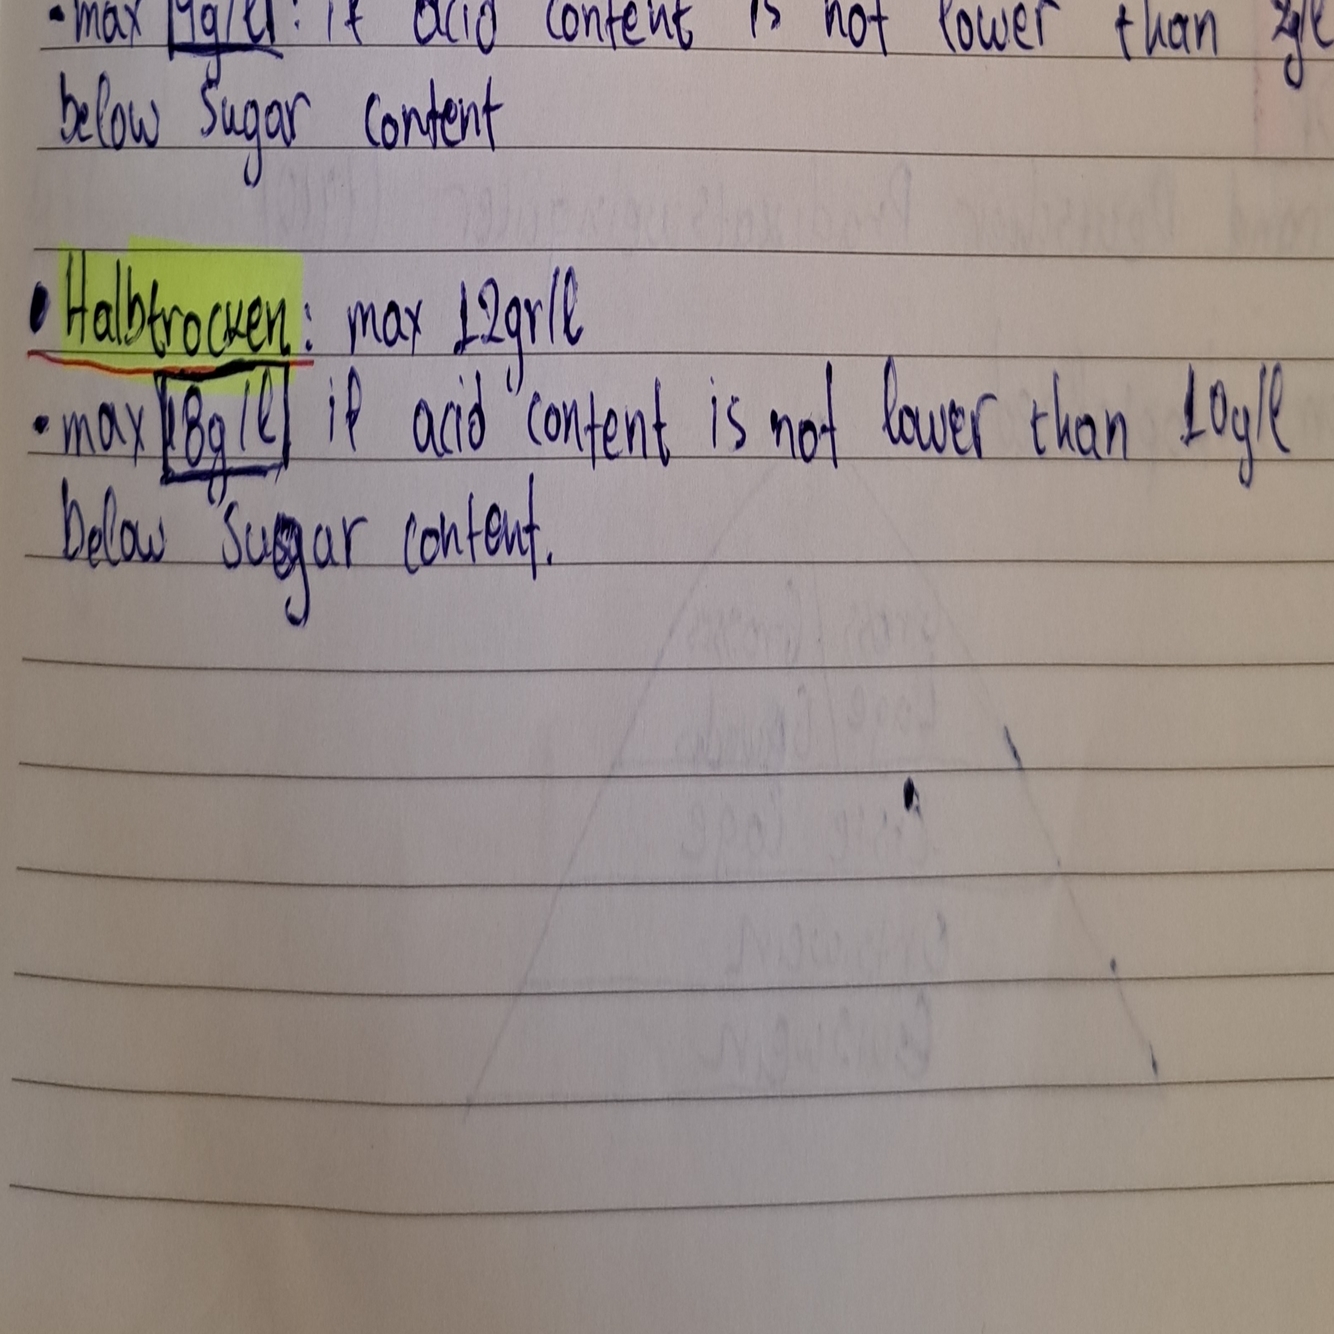 •max 9g/l: if acid content is not lower than 2g/l
below sugar content
• Halbtrocken: max 12gr/l
•max 18g/l if acid content is not lower than 10g/l
below sugar content.